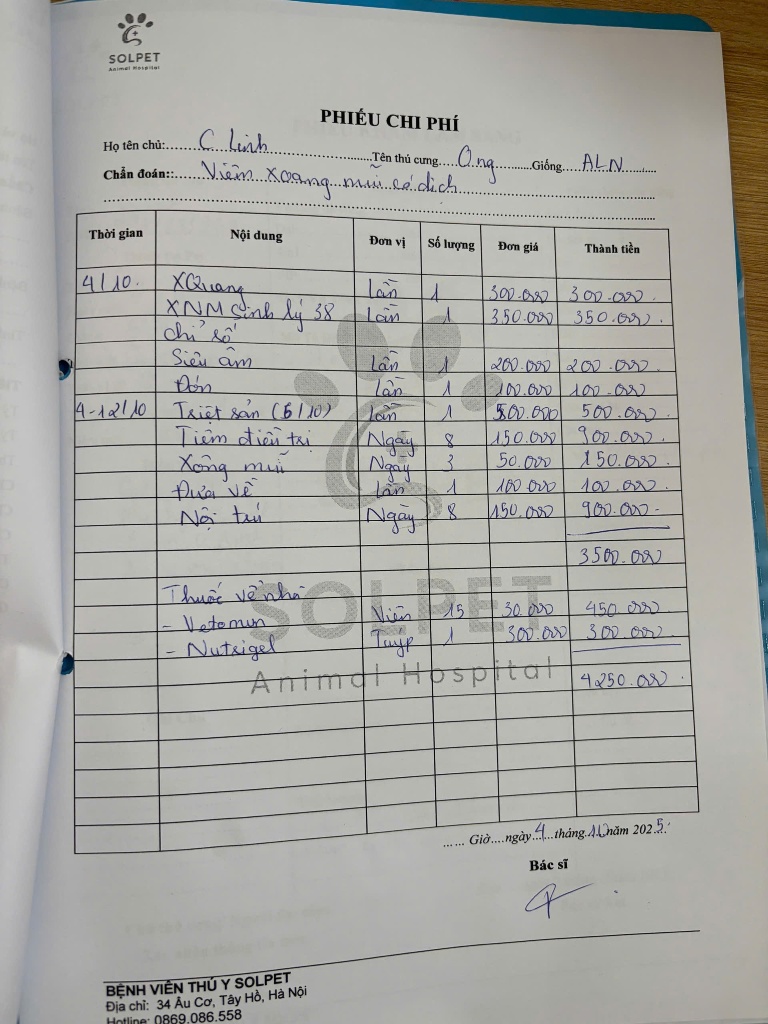 SOLPET
Animal Hospital
PHIẾU CHI PHÍ
Họ tên chủ:.....C Linh.....Tên thú cưng....Ong.....Giống....ALN.....
Chẩn đoán::.....Viêm xoang mũi có dịch.....
Thời gian Nội dung Đơn vị Số lượng Đơn giá Thành tiền
4/10. XQuang Lần 1 300.000 300.000.
XNM Sinh lý 38 Lần 1 350.000 350.000.
chỉ số
Siêu âm Lần 1 200.000 200.000.
Đón Lần 1 100.000 100.000
4-12/10 Triệt sản (6/10) Lần 1 500.000 500.000
Tiêm điều trị Ngày 8 150.000 900.000
Xông mũi Ngày 3 50.000 150.000
Đưa về Lần 1 100.000 100.000
Nội trú Ngày 8 150.000 900.000
3500.000
Thuốc về nhà
- Vetomun Viên 15 30.000 450.000
- Nutrigel Tuýp 1 300.000 300.000
4250.000
SOLPET
Animal Hospital
...... Giờ....ngày 4...tháng... năm 2025.
Bác sĩ
BỆNH VIỆN THÚ Y SOLPET
Địa chỉ: 34 Âu Cơ, Tây Hồ, Hà Nội
Hotline: 0869.086.558